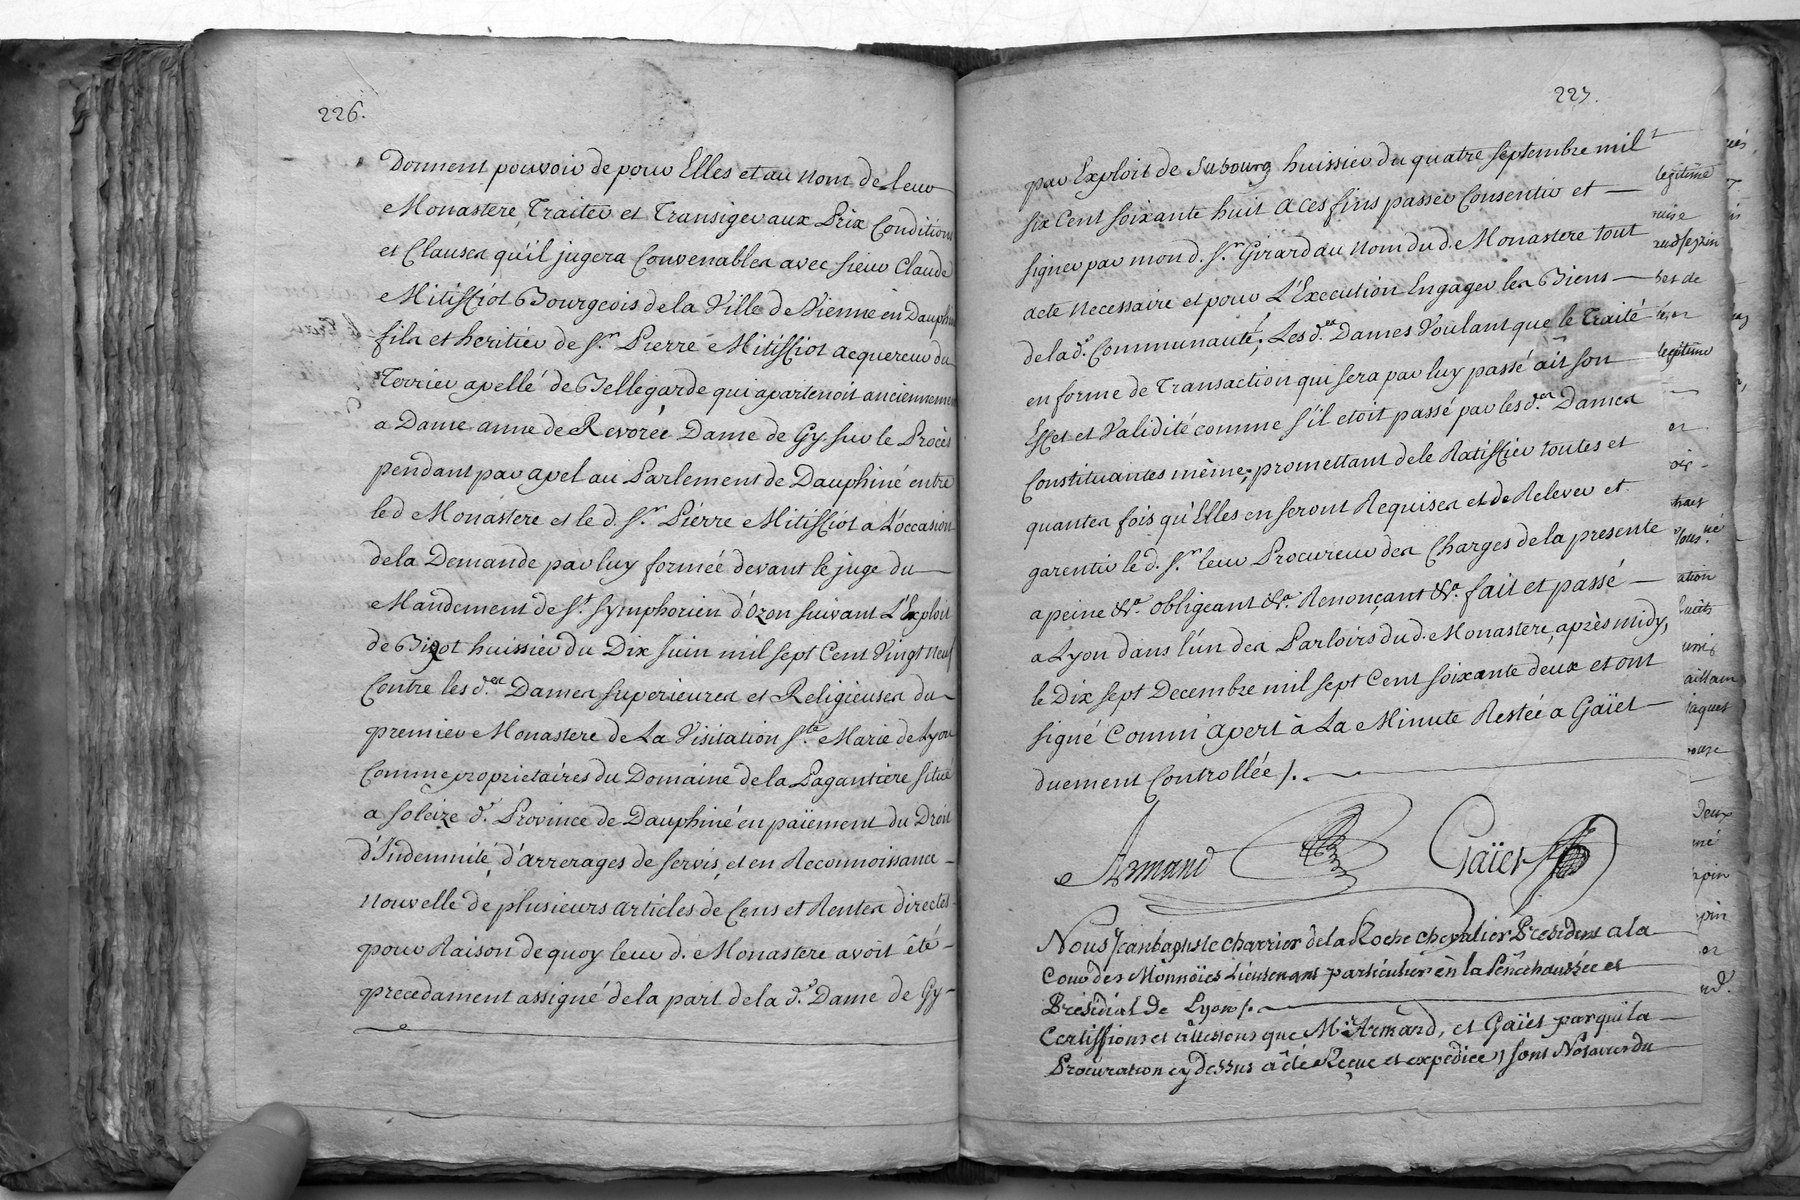 226.
Donnent pouvoir de pour Elles et au nom de leur
Monastere, Traiter et Transiger aux Prix Conditions
et Clauses qu'il jugera Convenables avec sieur Claude
Mitiffiot Bourgeois de la Ville de Vienne en Dauphin
fils et heritier de Sr. Pierre Mitiffiot acquereur du
Terrier apellé de Bellegarde qui apartenoit anciennement
a Dame anne de Revorée Dame de Gy sur le Procès
pendant par apel au Parlement de Dauphiné entre
led Monastere et le d. Sr. Pierre Mitiffiot a L'occasion
de la Demande par luy formée devant le juge du
Mandement de St. Symphorien d'Ozon suivant L'Exploit
de Bigot huissier du Dix Juin mil sept Cent Vingt neuf
Contre les des. Dames Superieures et Religieuses du
premier Monastere de La Visitation Ste. Marie de Lyon
Comme proprietaires du Domaine de la Pagantiere situé
a Soleize d. Province de Dauphiné en païement du Droit
d'Indemnité, d'arrerages de servis, et en Reconnoissance
nouvelle de plusieurs articles de Cens et Rentes directes
pour Raison de quoy leur d. Monastere avoit été
precedament assigné de la part de la de. Dame de Gy
227.
par Exploit de Subourg huissier du quatre septembre mil
six Cent soixante huit a ces fins passer Consentir et
signer par mon d. Sr. Girard au nom du d. Monastere tout
acte necessaire et pour L'Execution Engager les Biens
de la de. Communauté; Les des. Dames Voulant que le Traité
en forme de Transaction qui sera par luy passé ait son
Effet et Validité comme s'il etoit passé par les des. Dames
Constituantes même, promettant de le Ratiffier toutes et
quantes fois qu'Elles en seront Requises et de Relever et
garentir le d. Sr. leur Procureur des Charges de la presente
a peine &a. obligeant &a. Renonçant &a. fait et passé
a Lyon dans l'un des Parloirs du d. Monastere, après midy,
le Dix sept Decembre mil sept Cent soixante deux et ont
signé Comm' apert à La Minute Restée a Gaïet
duement Controllée /.
Armand Gaïet
Nous Jean baptiste charrier de la Roche chevalier President a la
Cour des Monnoïes Lieutenant particulier en la Sénéchaussée et
Présidial de Lyon /.
Certiffions et attestons que Mes. Armand, et Gaïet par qui la
Procuration cy dessus a été Reçue et expediee, sont Notaires du
legitime
de
legitime
ation
jaques
Deux